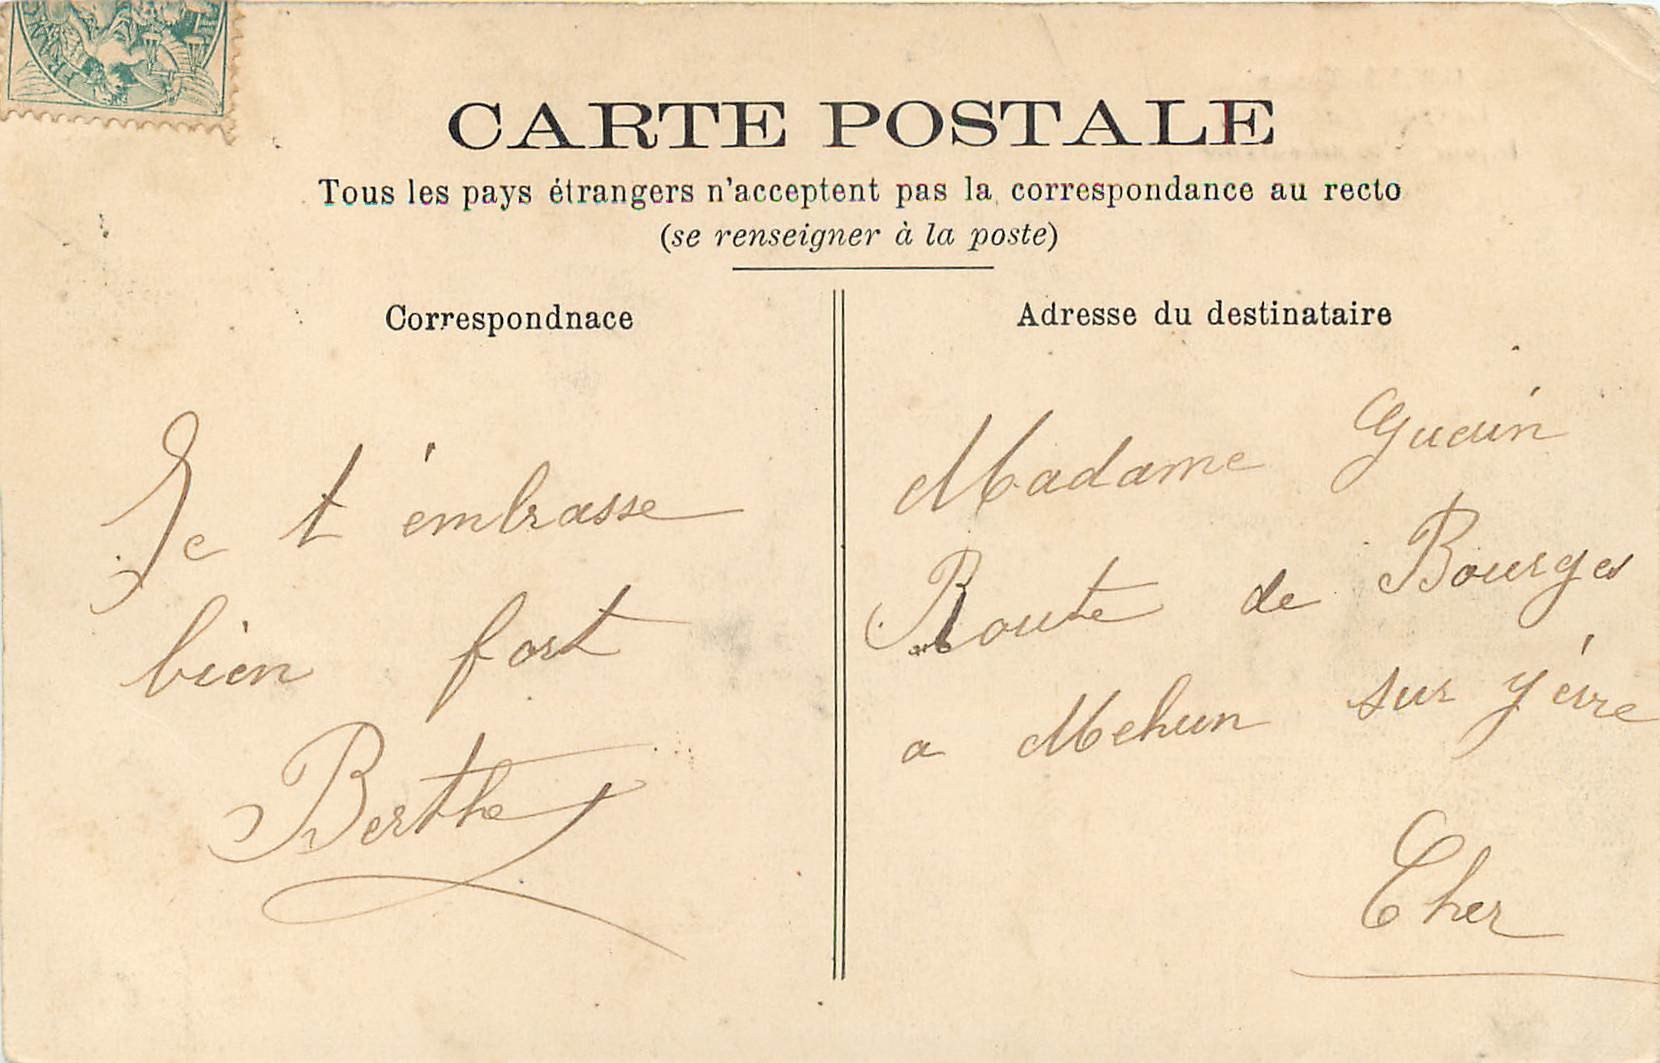 CARTE POSTALE
Tous les pays étrangers n'acceptent pas la correspondance au recto
(se renseigner à la poste)
Correspondnace
Je t'embrasse
bien fort
Berthe
Adresse du destinataire
Madame
Route de Bourges
a Mehun sur yèvre
Cher